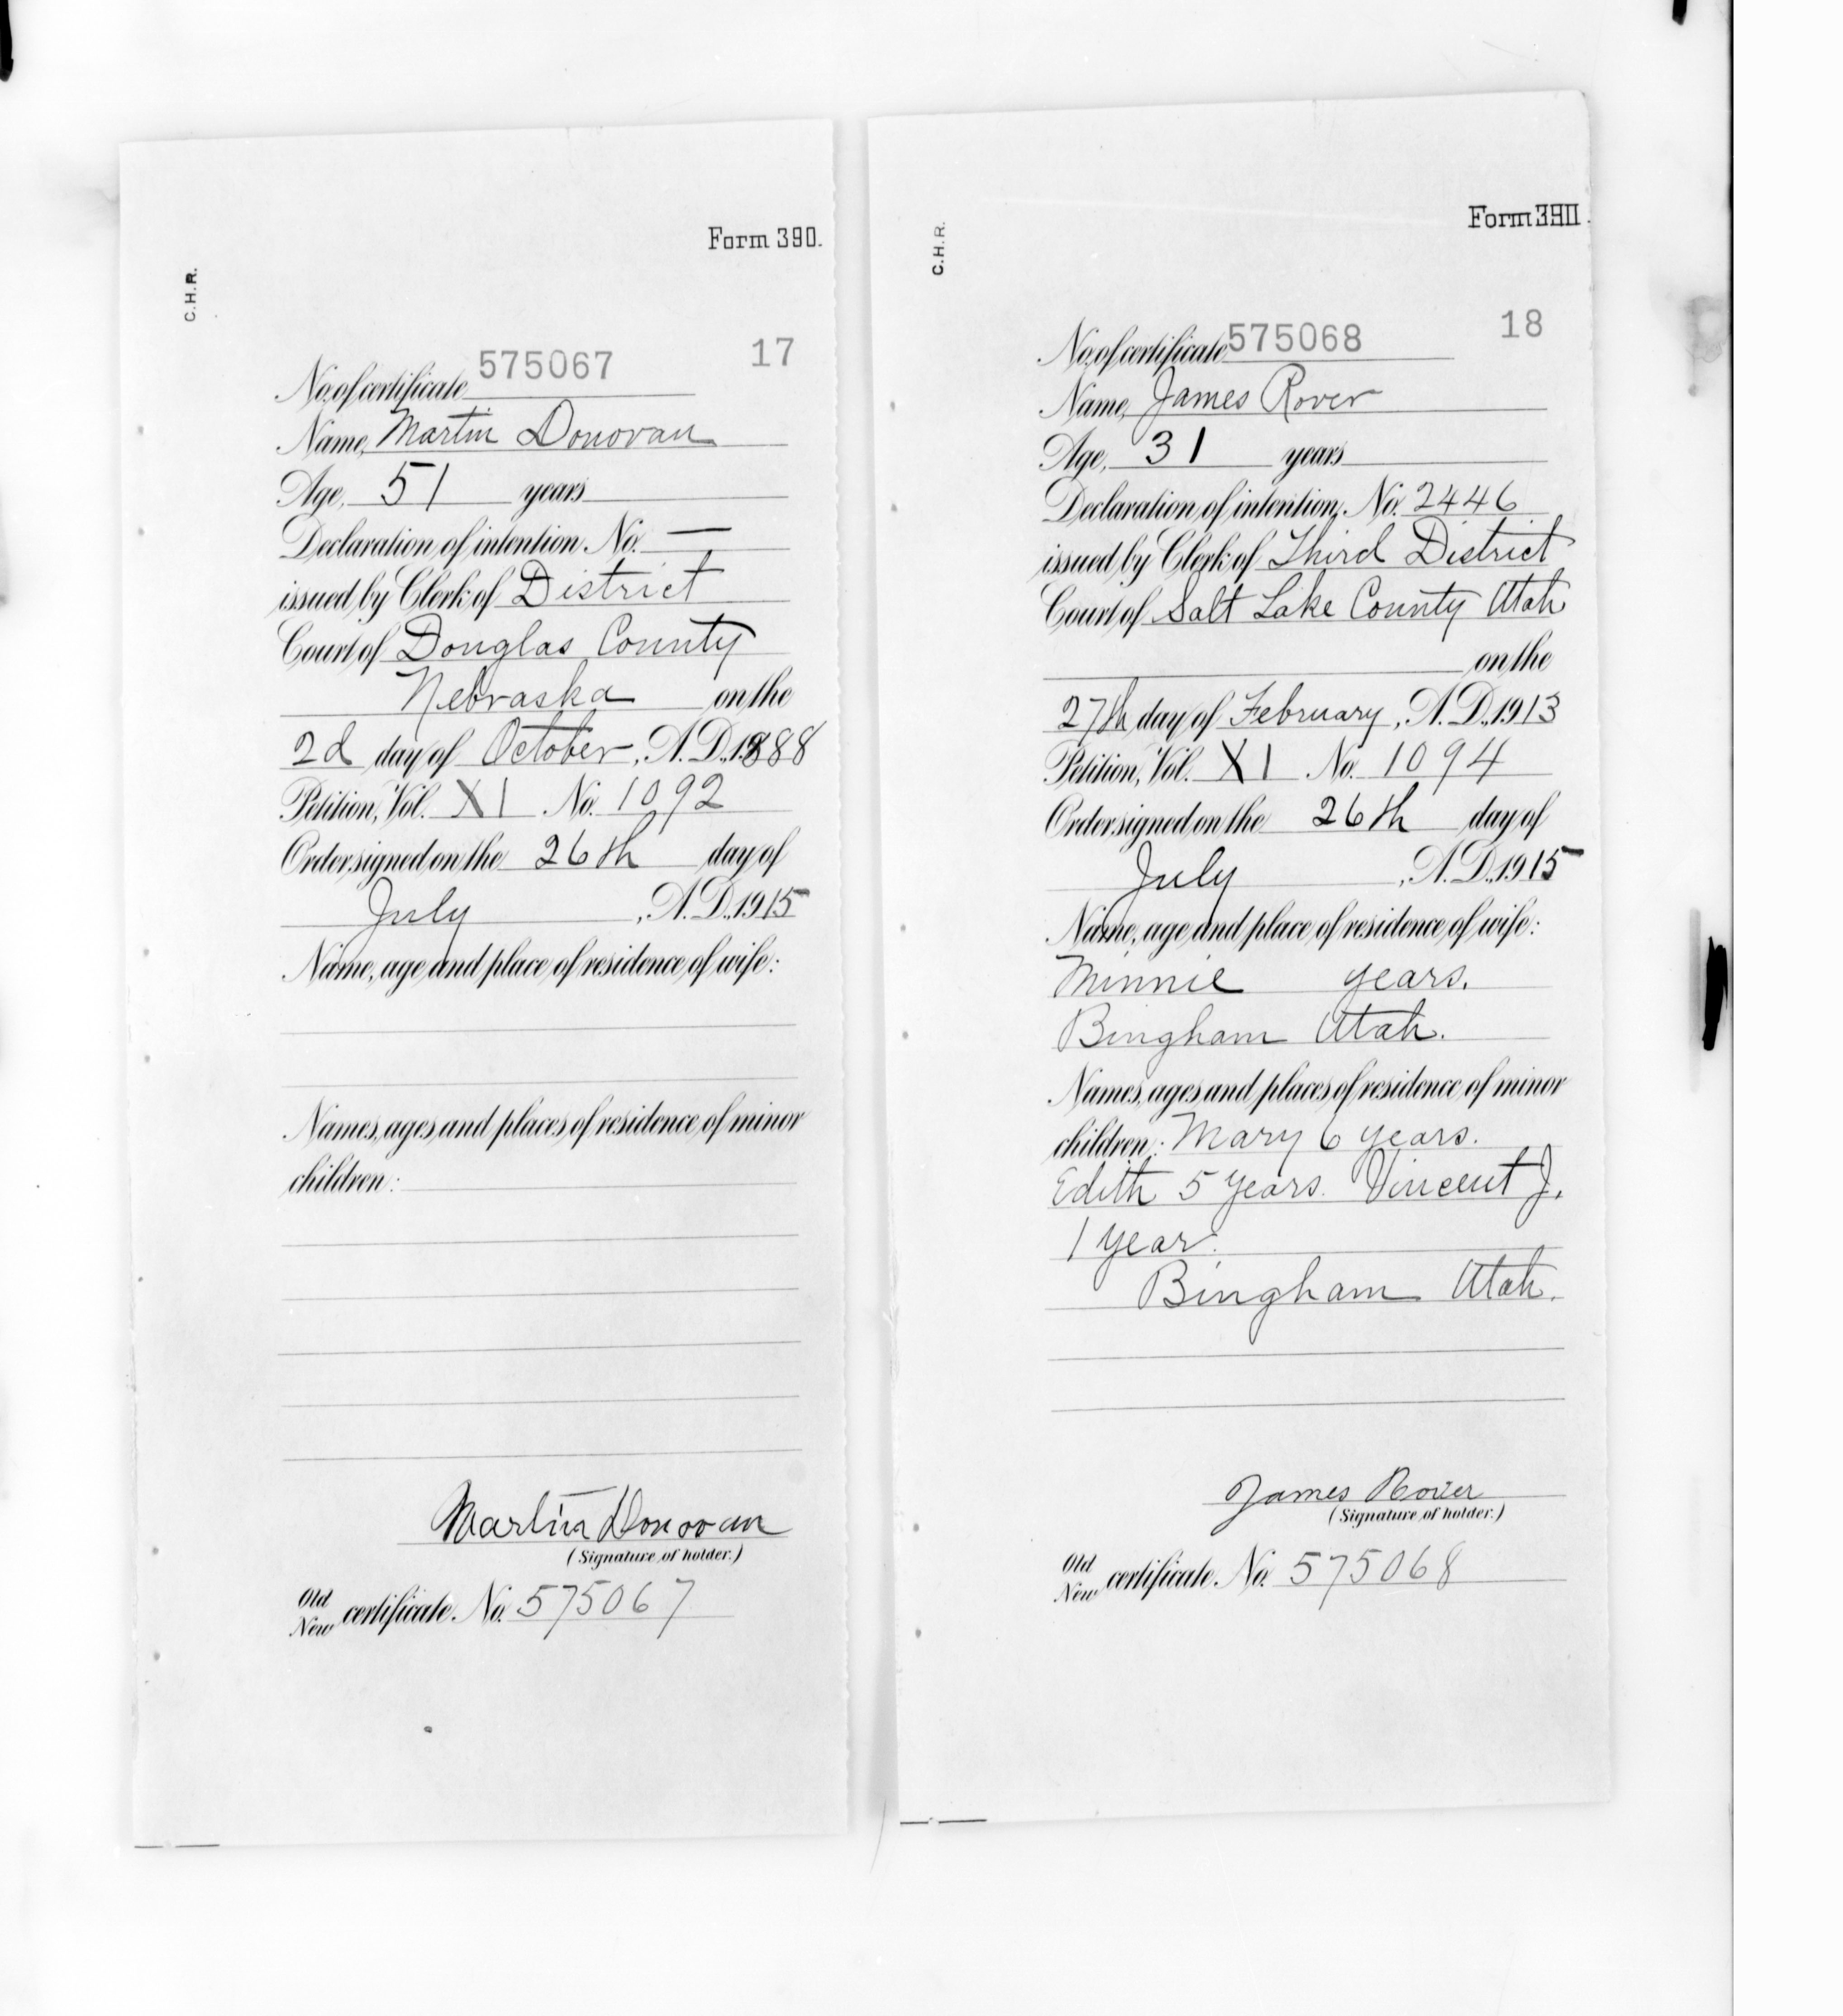 Form 390.
C.H.R.
17
No. of certificate 575067
Name, Martin Donovan
Age, 51 years
Declaration of intention No. —
issued by Clerk of District
Court of Douglas County
Nebraska on the
2d day of October, A.D., 1888
Petition, Vol. XI No. 1092
Order signed on the 26th day of
July, A.D., 1915
Name, age and place of residence of wife:
Names, ages and places of residence of minor
children:
Martin Donovan
(Signature of holder.)
Old
New certificate No. 575067
Form 390.
C.H.R.
18
No. of certificate 575068
Name, James Rover
Age, 31 years
Declaration of intention, No. 2446
issued by Clerk of Third District
Court of Salt Lake County Utah
on the
27th day of February, A.D., 1913
Petition, Vol. XI No. 1094
Order signed on the 26th day of
July, A.D., 1915
Name, age and place of residence of wife:
Minnie years.
Bingham Utah.
Names, ages and places of residence of minor
children: Mary 6 years.
Edith 5 years. Vincent J.
1 year.
Bingham Utah.
James Rover
(Signature of holder.)
Old
New certificate No. 575068